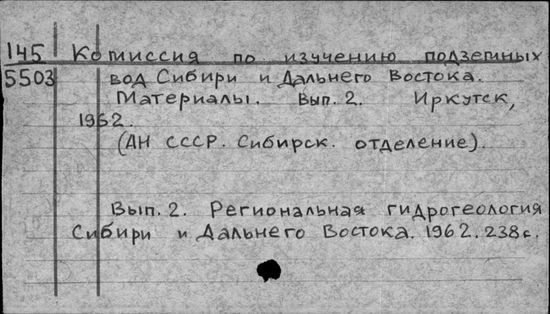 145 Комиссия по изучению подземных
5503 вод Сибири и Дальнего Востока.
Материалы. Вып. 2. Иркутск,
1962.
(АН СССР. Сибирск. отделение).
Вып. 2. Региональная гидрогеология
Сибири и Дальнего Востока. 1962. 238с.